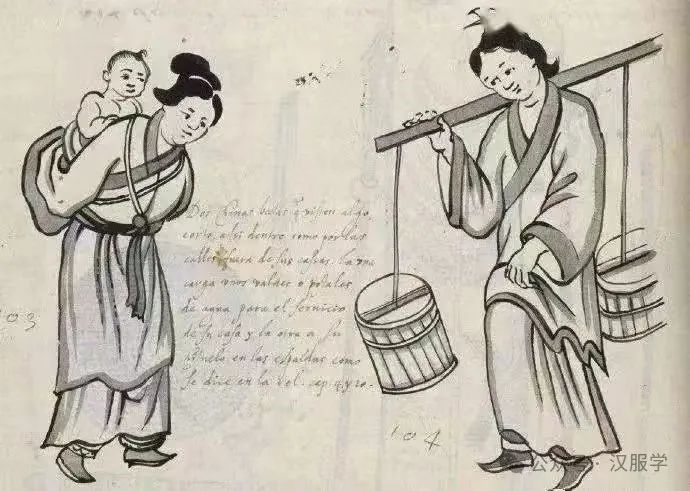 Dos chinas bajas q̃ visten algo
corto, así dentro como por las
calles fuera de sus casas. la una
carga unos valdes o potales
de agua para el servicio
de su casa y la otra a su
hijuelo en las espaldas como
se dice en la Rel. cap
103
104
公众号 · 汉服学